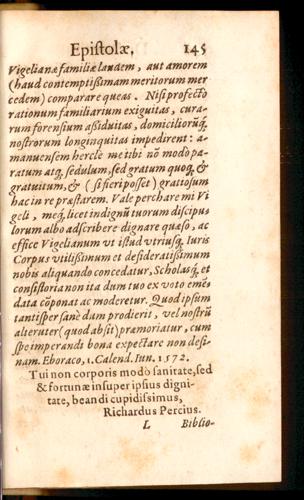 Epistolæ, 145
Vigelianæ familiæ laudem, aut amorem
(haud contemptißimam meritorum mer
cedem) comparare queas. Nisi profectò
rationum familiarium exiguitas, cura-
rum forensium aßiduitas, domiciliorũq́
nostrorum longinquitas impedirent: a-
manuensem herclè me tibi nõ modò pa-
ratum atq, sedulum, sed gratum quoq, &
gratuitum, & (si fieri poſſet) gratiosum
hac in re præstarem. Vale perchare mi Vi
geli, meq́, licet indignũ tuorum discipu-
lorum albo adscribere dignare quæso, ac
effice Vigelianum vt istud vtriusq, Iuris
Corpus vtilißimum et desideratißimum
nobis aliquando concedatur, Scholasq́, et
consistoria non ita dum tuo ex voto emẽ-
data cõponat ac moderetur. Quod ipsum
tantisper sanè dam prodierit, vel nostrũ
alteruter (quod absit) præmoriatur, cum
spe imperandi bona expectare non desi-
nam. Eboraco, 1. Calend. Iun. 1572.
Tui non corporis modò sanitate, sed
& fortunæ insuper ipsius digni-
tate, beandi cupidissimus,
Richardus Percius.
L Biblio-